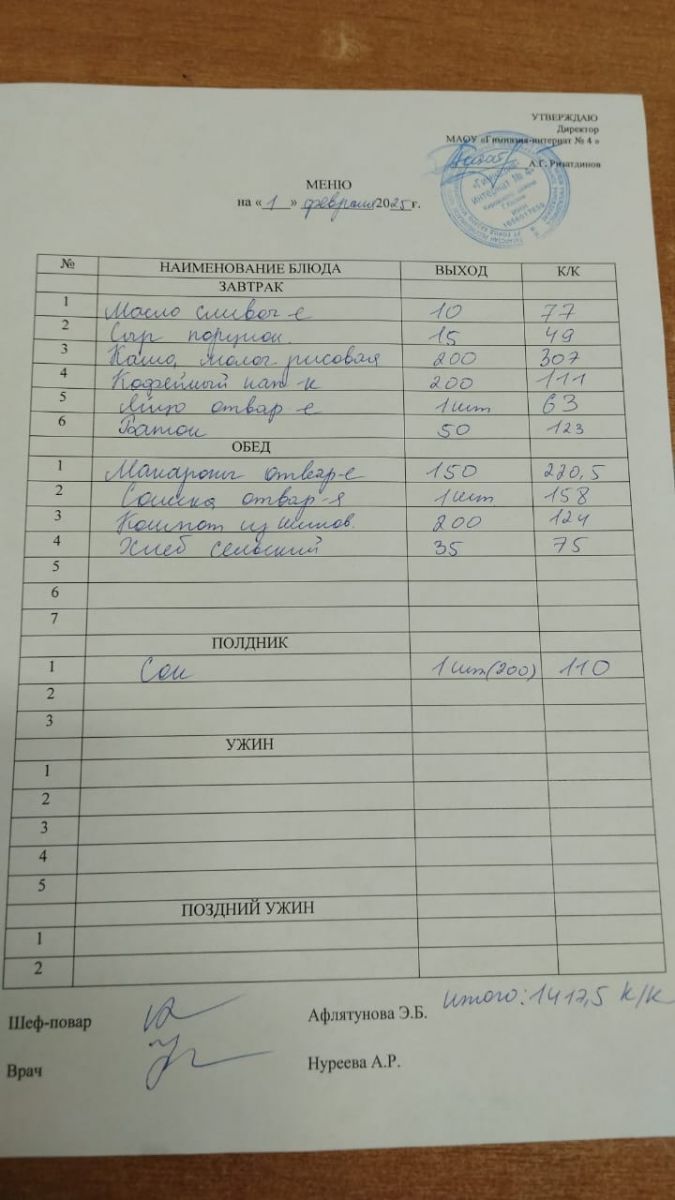 УТВЕРЖДАЮ
Директор
МАОУ «Гимназия-интернат № 4 »
А.Г. Ризатдинов
«Гимназия-
Интернат № 4»
МЕНЮ
на « 1 » февраля 2025 г.
№ НАИМЕНОВАНИЕ БЛЮДА ВЫХОД К/К
ЗАВТРАК
1 Масло сливоч-е 10 77
2 Сыр порцион. 15 49
3 Каша молоч. рисовая 200 307
4 Кофейный нап-к 200 111
5 Яйцо отвар-е 1шт 63
6 Батон 50 123
ОБЕД
1 Макароны отвар-е 150 220,5
2 Сосиска отвар-я 1шт 158
3 Компот из шипов. 200 124
4 Хлеб сельский 35 75
5
6
7
ПОЛДНИК
1 Сок 1шт(200) 110
2
3
УЖИН
1
2
3
4
5
ПОЗДНИЙ УЖИН
1
2
итого: 1417,5 к/к
Шеф-повар Афлятунова Э.Б.
Врач Нуреева А.Р.